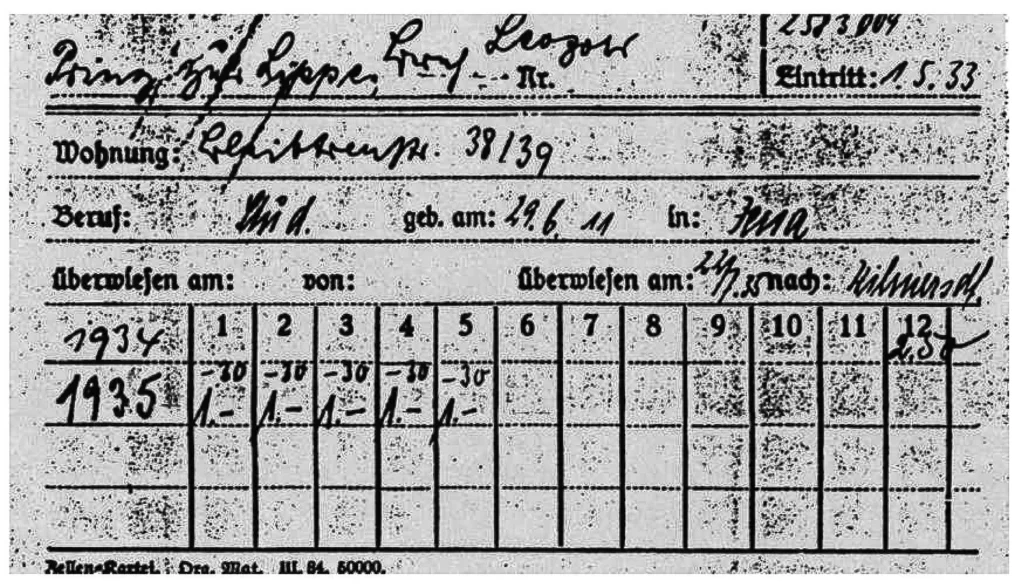 2583009
Prinz zur Lippe, Leopold
Nr. Eintritt: 1.5.33
Wohnung: 38/39
Beruf: Stud. geb. am: 29.6.11 in: Jena
überwiesen am: von: überwiesen am: nach:
1934 1 2 3 4 5 6 7 8 9 10 11 12
2.50
-30 -30 -30 -30 -30
1935 1.- 1.- 1.- 1.- 1.-
Zellen-Kartei. Org. Mat. III. 84. 50000.